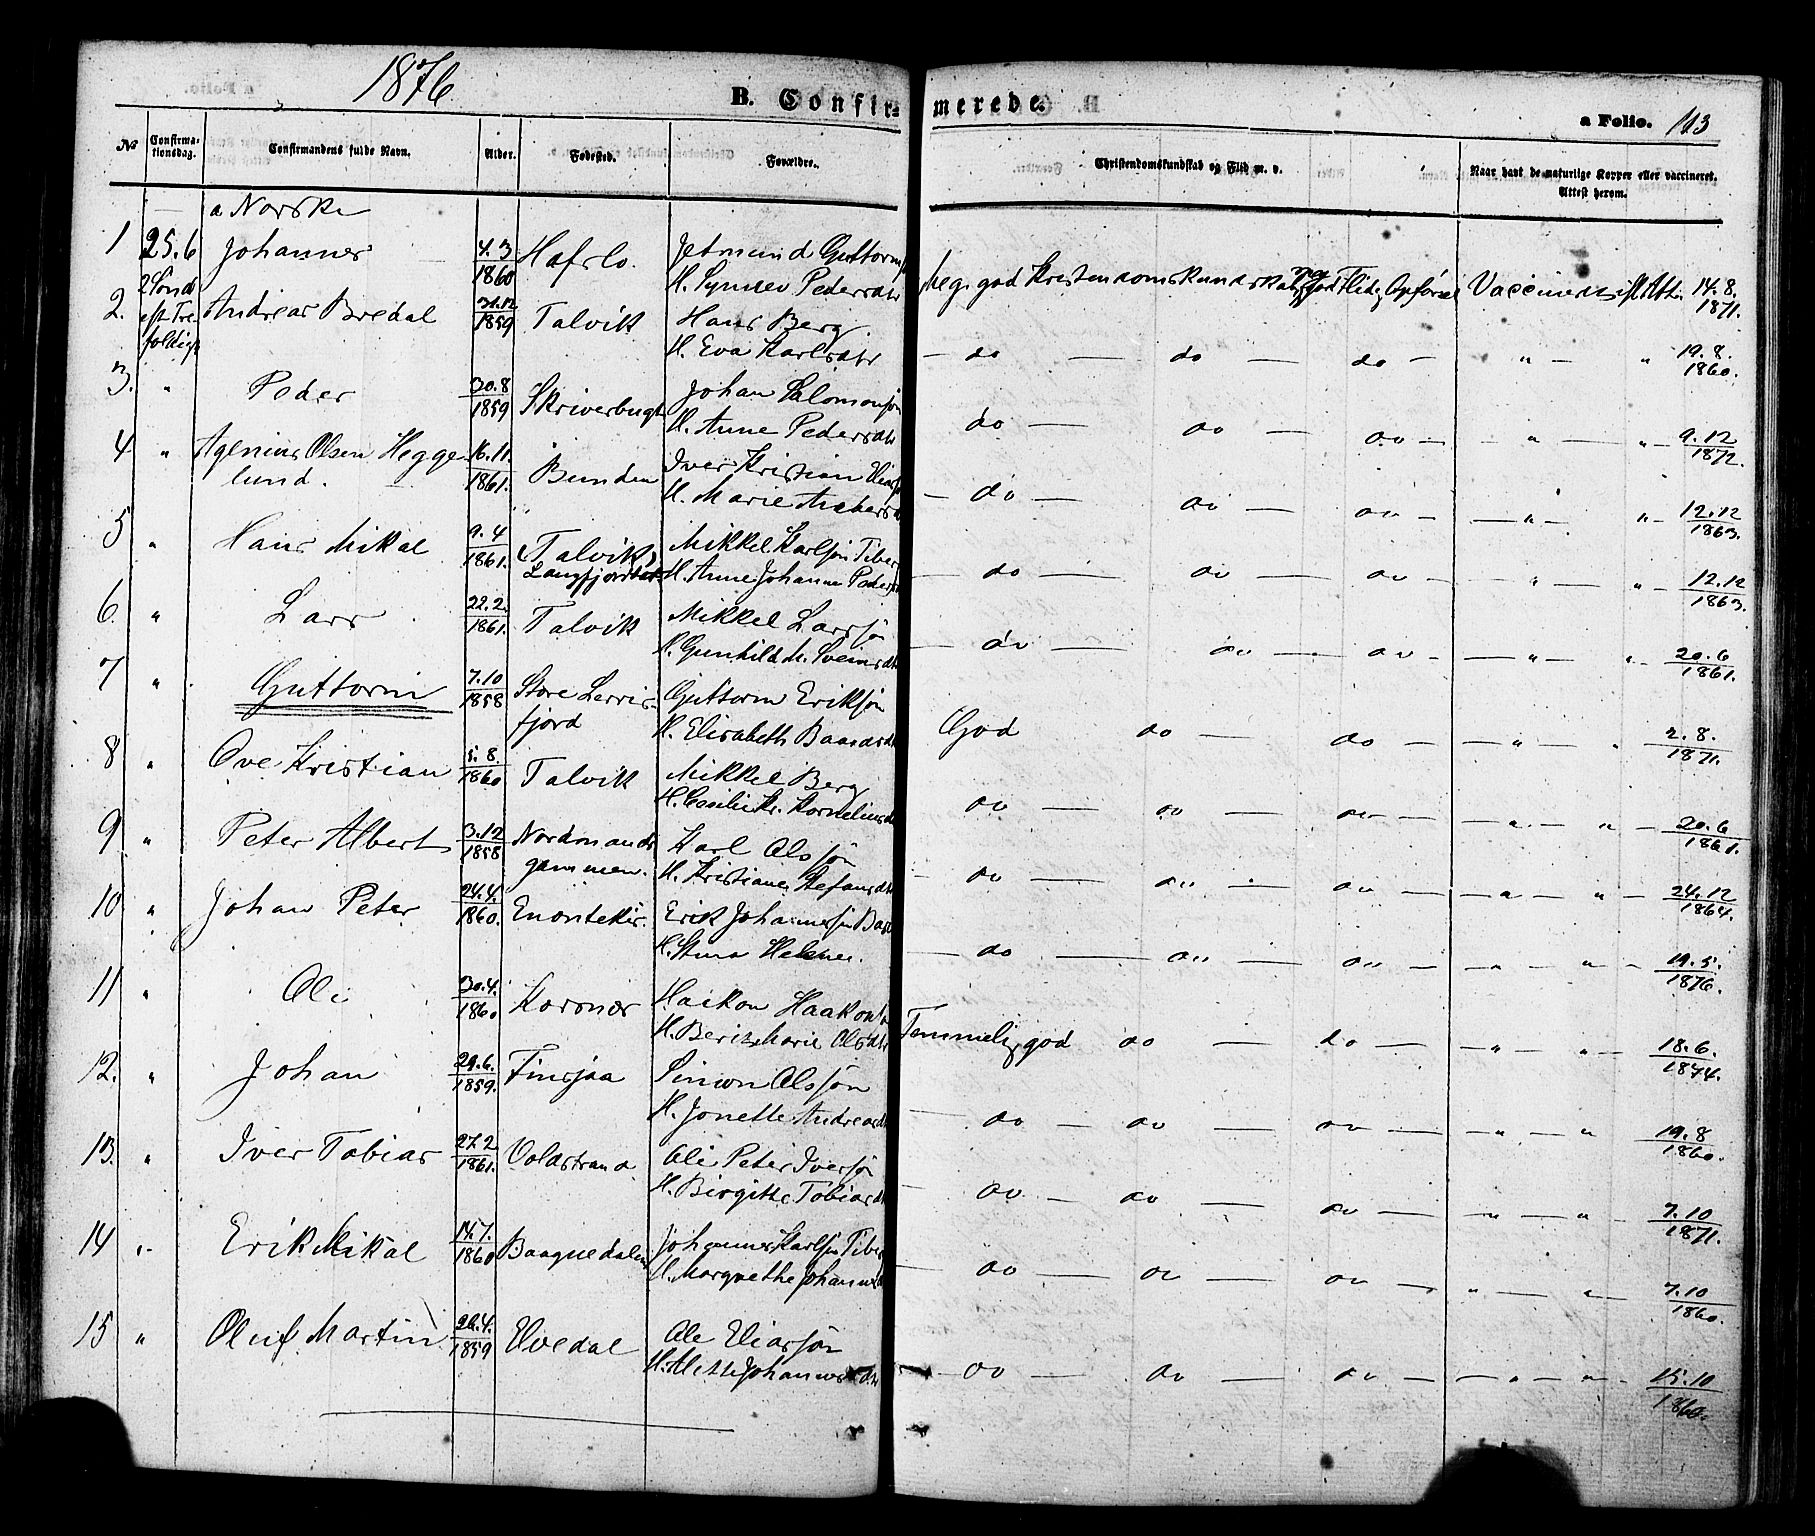 1876
B. Confir=
merede.
a Folio. 113
No
Confirma-
tionsdag.
Confirmandens fulde Navn.
Alder.
Fødested.
Forældre.
Christendomskundskab og Flid m. v.
Naar havt de naturlige Kopper eller vaccineret.
Attest herom.
a Norske
1 25.6 Johannes 4.3 1860 Hafslo. Jetmund Guttorms
H. Synnev Pedersdtr
Meg. god Kristendomskundskab, meg god Flid og Opførsel Vaccineret if. Att. 14.8. 1871.
2 Sønd
eft. Tre
foldigh
2. Andreas Bredal 31.12 1859 Talvik Hans Berg.
H. Eva Karlsdtr
— do — do — do — " — " 19.8. 1860.
3. " Peder 30.8 1859 Skriverbugt Johan Salomonsøn
H. Anne Pedersdtr
do — do — do — " — " — 9.12 1872.
4 " Agenius Olsen Hegge-
lund. 16.11. 1861. Bunden Iver Kristian Elias
H. Marie Andersd
— do — do — do — " — " — 12.12 1863.
5 " Hans Mikal 9.4 1861. (Talvik) Mikkel Karlsøn Tiber
Langfjordbot H. Anne Johanne Peders
— do — do — do — " — " 12.12 1863.
6. " Lars 22.2. 1861. Talvik Mikkel Larssøn
H. Gunhild M. Sveinsdtr
— do — do — do — " — " — 20.6 1861.
7 " Guttorm 7.10 1858 Store Lerris-
fjord Guttorm Eriksøn
H. Elisabeth Baardsdtr
God do — do — " — " 2.8. 1871.
8 " Ove Kristian 5.8. 1860 Talvik Mikkel Berg
H. Cecilie Kr. Kornelius
do — do — do — " — " — 20.6 1861.
9 " Peter Albert 3.12 1858 Nordmands
gammen. Karl Olssøn
H. Kristiane Stefansdtr
— do — do — do — " — " — 24.12 1864.
10 " Johan Peter 24.4. 1860. Enontekis. Erik Johannessøn
H. Stina Helene.
— do — do — do — " — " — 19.5. 1876.
11 " Ole 30.4. 1860 Korsnes Haikon Haakons
H. Berit Marie Olsdtr
Temmelig god do — do — " — " — 18.6. 1874.
12. " Johan 29.6. 1859. Finsjaa Simon Olssøn
H. Jonette Andreasd
— do — do — do — " — " 19.8 1860.
13. " Iver Tobias 27.2 1861. Voldstrand Ole Peter Iversøn
H. Birgitte Tobiasd
— do — do — do — " — " — 7.10 1871.
14 " Erik Mikal 14.7. 1860 Baagnedalen Johannes Karlsøn Tiber
H. Margrethe Johannesd
— do — do — do — " — " — 7.10 1860.
15 " Oluf Martin 26.4. 1859 Elvedal Ole Eliassøn
H. Mette Johannesdtr
— do — do — do — " — " — 15.10 1860.